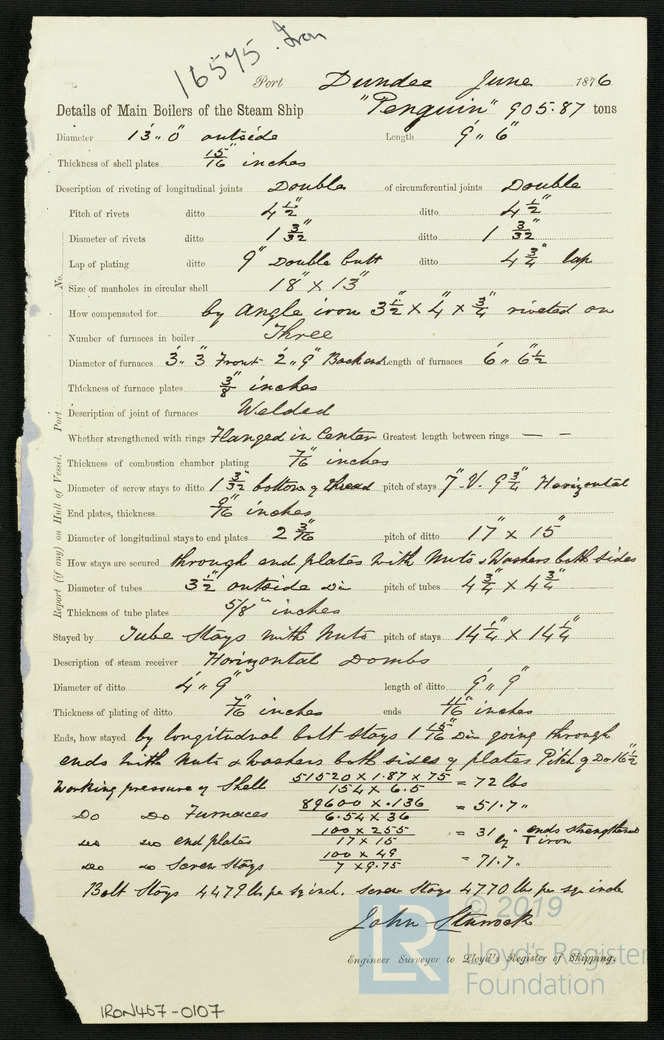 16575 Iron
Port Dundee June 1876
Details of Main Boilers of the Steam Ship "Penguin" 905.87 tons
Diameter 13'.. 0" outside Length 9'.. 6"
Thickness of shell plates 15/16" inches
Description of riveting of longitudinal joints Double of circumferential joints Double
Pitch of rivets ditto 4 1/2" ditto 4 1/2"
Diameter of rivets ditto 1 3/32" ditto 1 3/32"
Lap of plating ditto 9" Double butt ditto 4 3/4" lap
Size of manholes in circular shell 18" x 13"
How compensated for by Angle iron 3 1/2" x 4" x 3/4" riveted on
Number of furnaces in boiler Three
Diameter of furnaces 3'.. 3" Front 2'.. 9" Back end Length of furnaces 6'.. 6 1/2
Thickness of furnace plates 3/8" inches
Description of joint of furnaces Welded
Whether strengthened with rings Flanged in Center Greatest length between rings — —
Thickness of combustion chamber plating 7/16" inches
Diameter of screw stays to ditto 1 3/32" bottom of thread pitch of stays 7".V. 9 3/4" Horizontal
End plates, thickness 9/16" inches
Diameter of longitudinal stays to end plates 2 3/16" pitch of ditto 17" x 15"
How stays are secured through end plates with Nuts & Washers both sides
Diameter of tubes 3 1/2" outside Dia pitch of tubes 4 3/4" x 4 3/4"
Thickness of tube plates 5/8" inches
Stayed by Tube Stays with Nuts pitch of stays 14 1/4" x 14 1/4"
Description of steam receiver Horizontal Dombs
Diameter of ditto 4'.. 9" length of ditto 9'.. 9"
Thickness of plating of ditto 7/16" inches ends 11/16" inches
Ends, how stayed by longitudnal bolt stays 1 15/16" Dia going through
ends with Nuts & washers both sides of plates Pitch of Do 16 1/2"
Working pressure of Shell 51520 x 1.87 x 75 / 154 x 6.5 = 72 lbs
Do Do Furnaces 89600 x .136 / 6.54 x 36 = 51.7 "
do do end plates 100 x 255 / 17 x 15 = 31 " ends strengthened by T iron
do do Screw Stays 100 x 49 / 7 x 9.75 = 71.7 "
Bolt Stays 4479 lbs per sq inch. Screw Stays 4770 lbs per sq inch
John Sturrock
Engineer Surveyor to Lloyd's Register of Shipping.
No.
Port
Report (if any) on Hull of Vessel.
LR © 2019
Lloyd's Register
Foundation
IRON467-0107